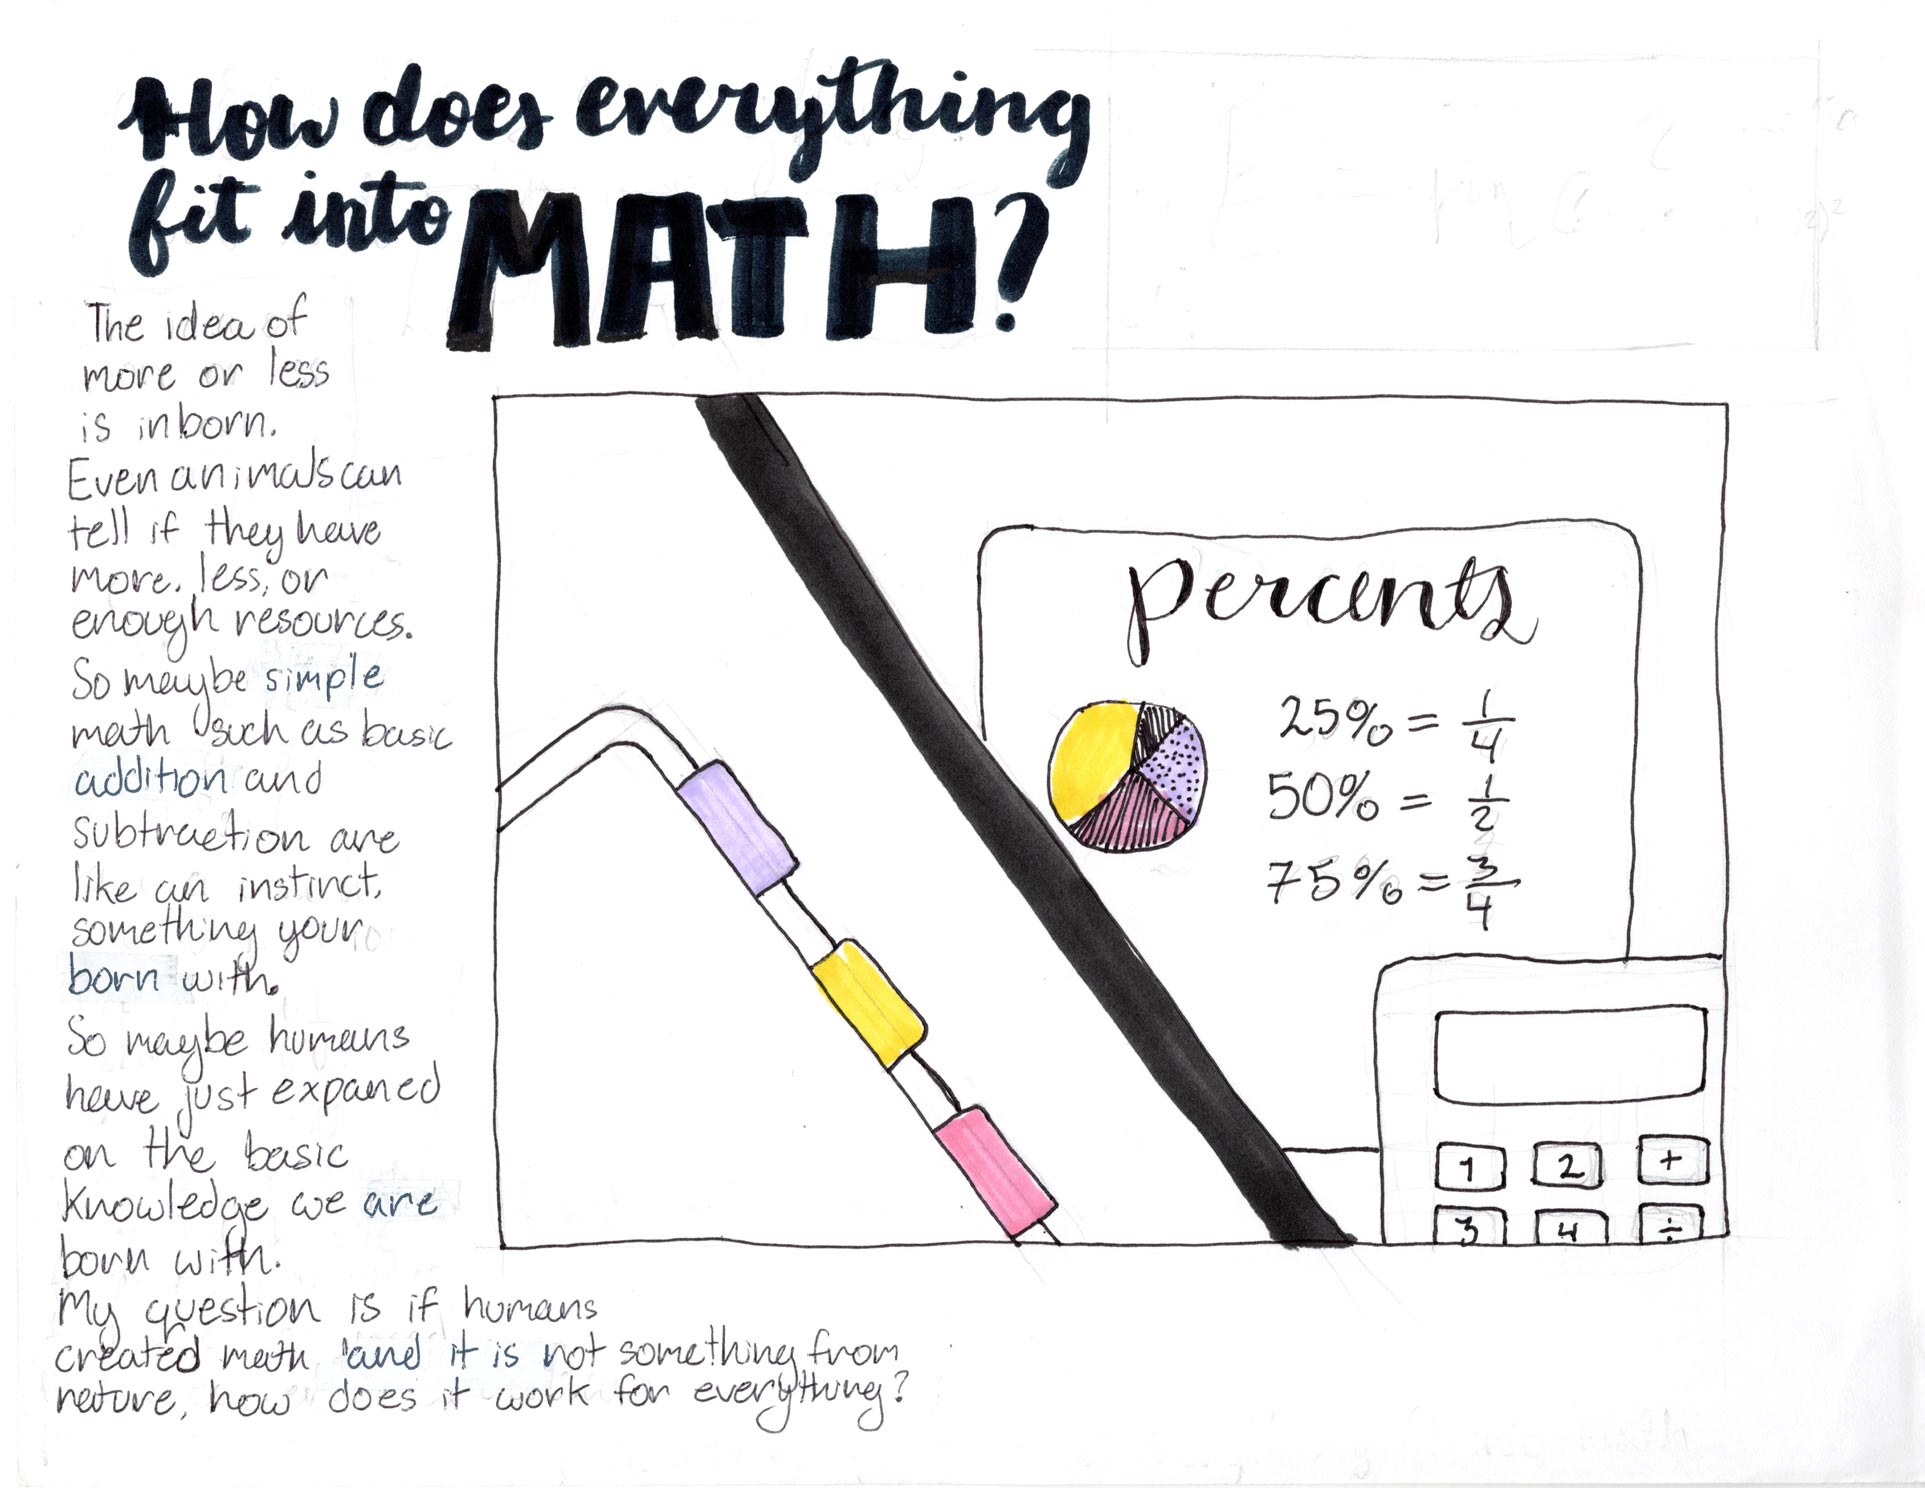 How does everything
fit into MATH?
The idea of
more or less
is inborn.
Even animals can
tell if they have
more, less, or
enough resources.
So maybe simple
math such as basic
addition and
subtraction are
like an instinct,
something your
born with.
So maybe humans
have just expaned
on the basic
knowledge we are
born with.
My question is if humans
created math and it is not something from
nature, how does it work for everything?
percents
25% = 1/4
50% = 1/2
75% = 3/4
1 2 +
3 4 ÷